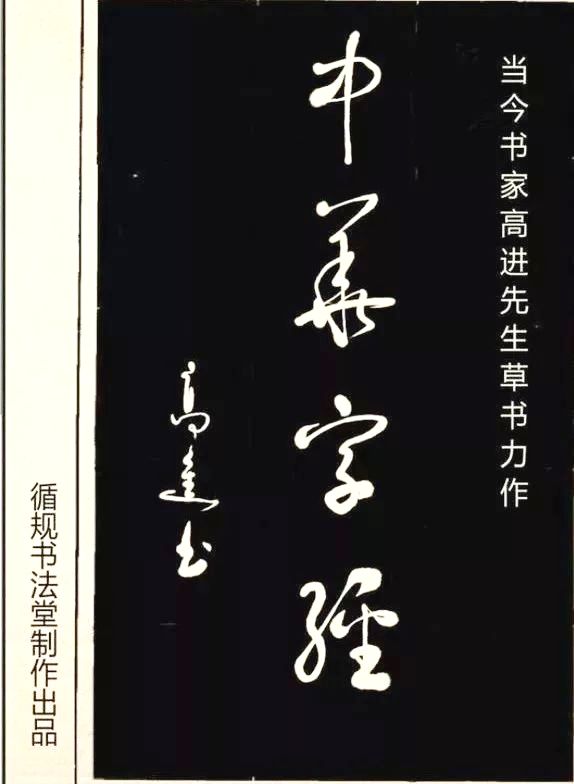 当今书家高进先生草书力作
中华字经
高进书
循规书法堂制作出品